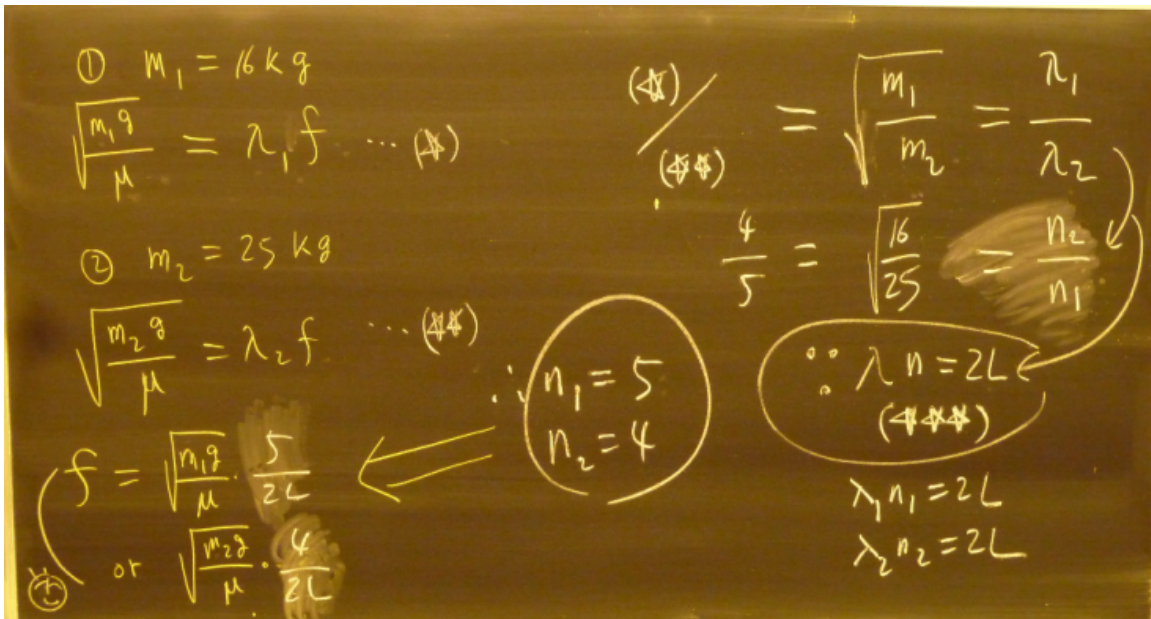 ① m₁ = 16 kg
√(m₁g/μ) = λ₁f ... (☆)
② m₂ = 25 kg
√(m₂g/μ) = λ₂f ... (☆☆)
f = √(m₁g/μ) · 5/2L
or √(m₂g/μ) · 4/2L
(☆)/(☆☆) = √(m₁/m₂) = λ₁/λ₂
4/5 = √(16/25) = n₂/n₁
∵ λn = 2L
(☆☆☆)
λ₁n₁ = 2L
λ₂n₂ = 2L
∴ n₁ = 5
n₂ = 4